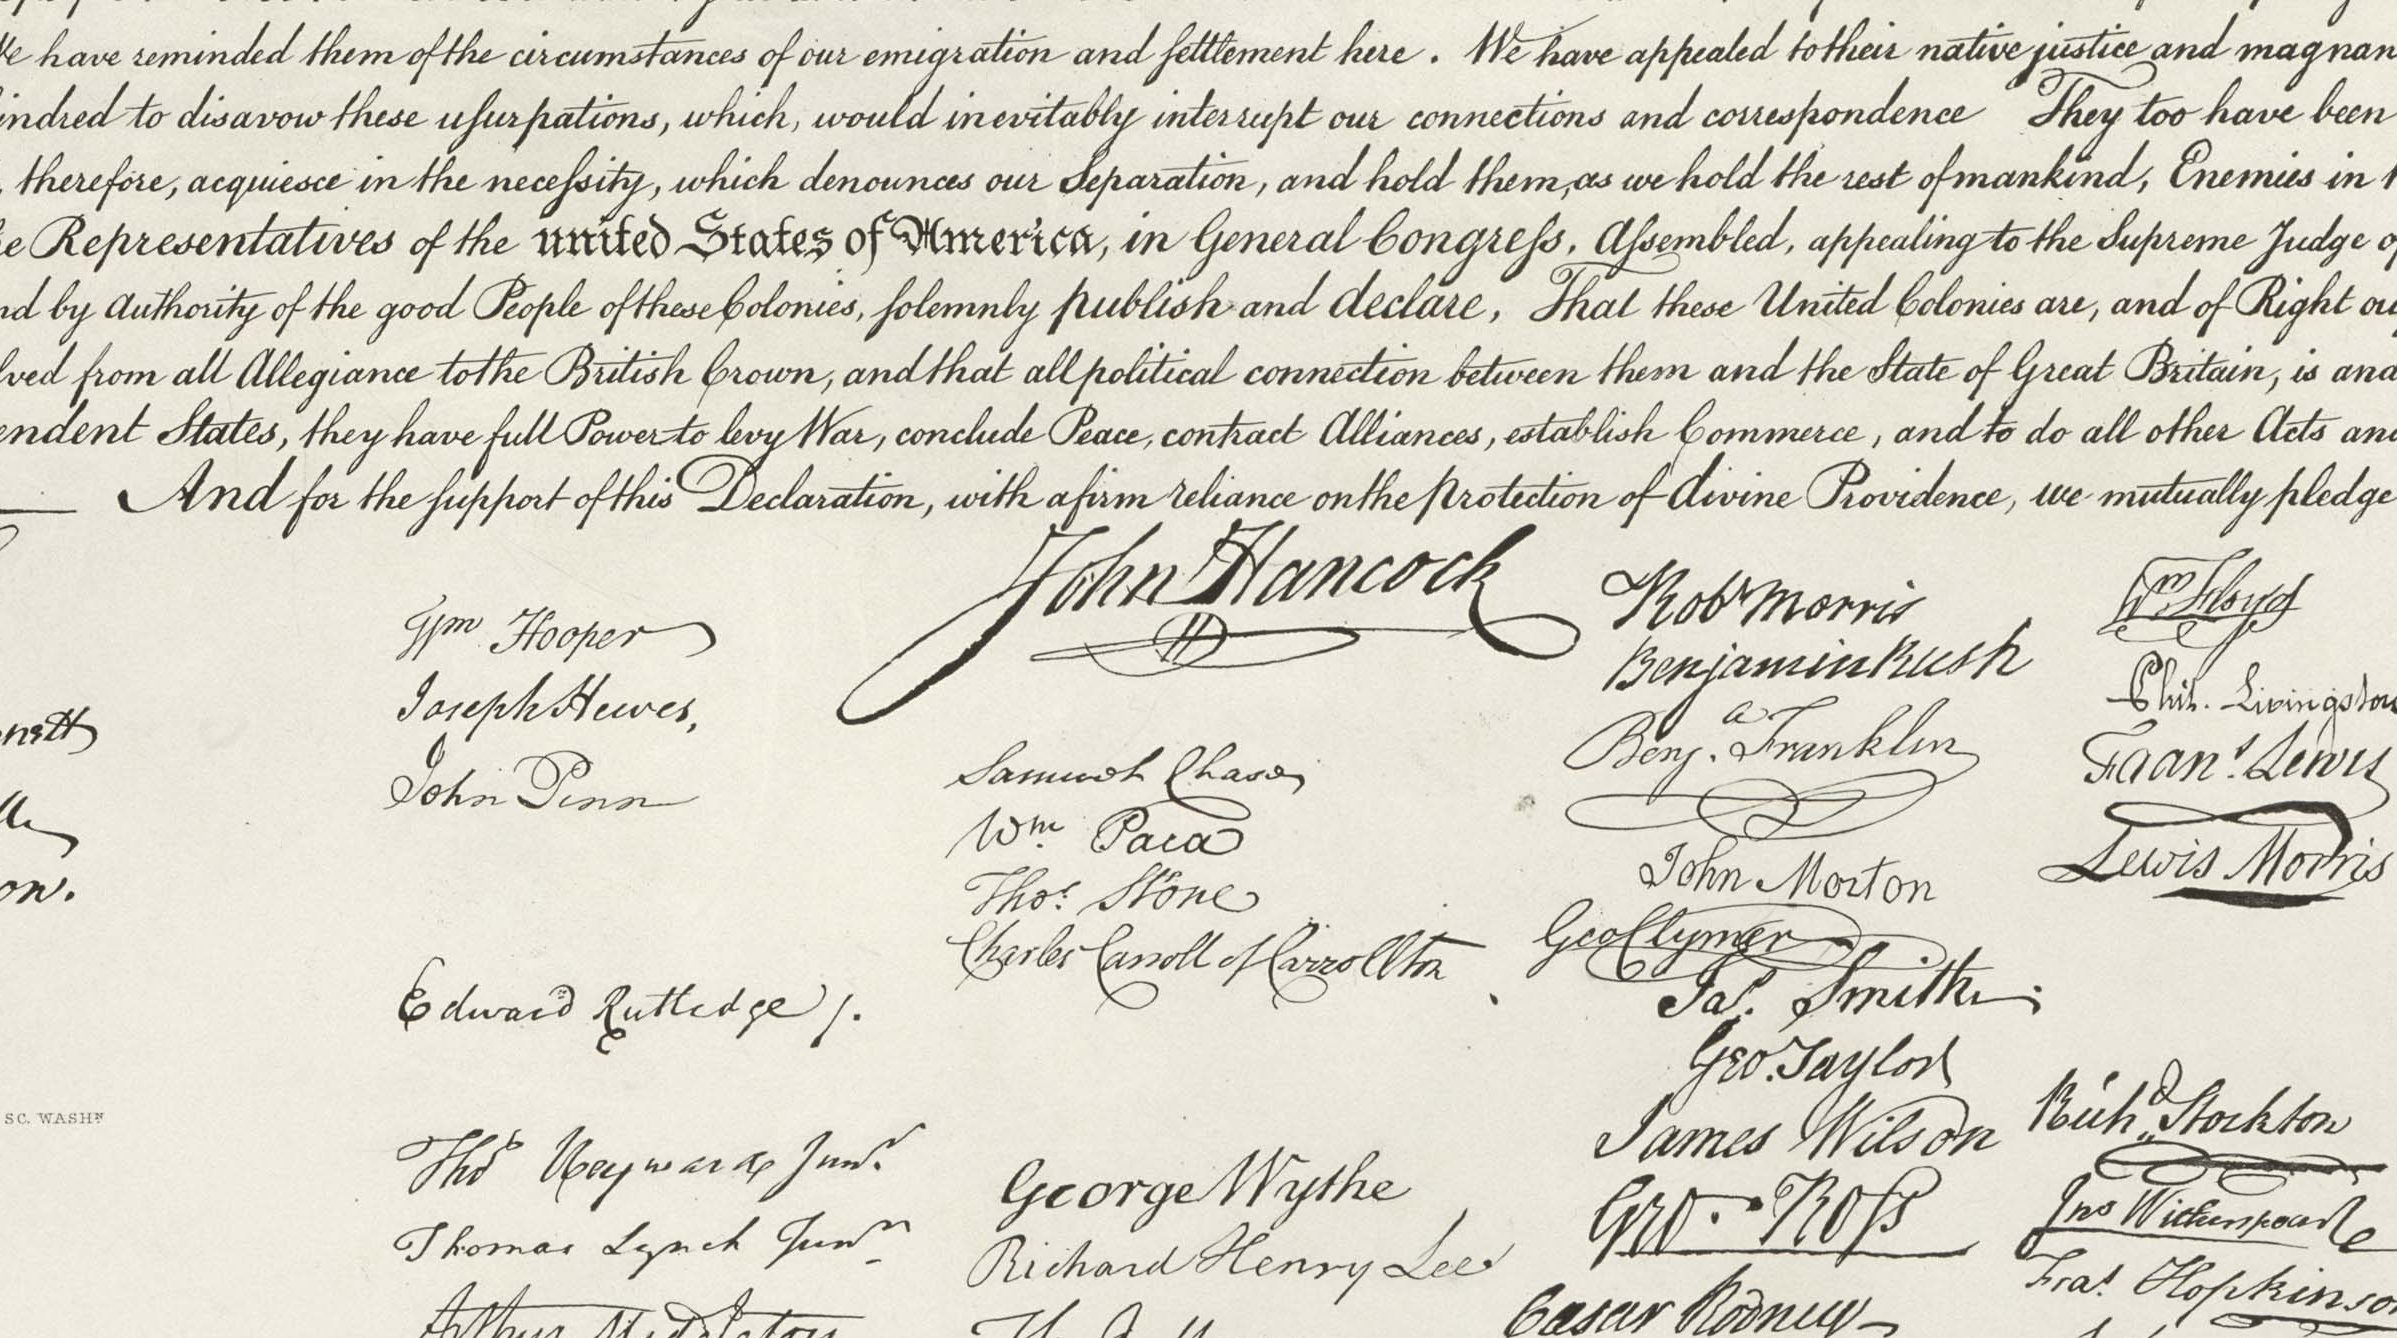 have reminded them of the circumstances of our emigration and settlement here. We have appealed to their native justice and magnan
indred to disavow these usurpations, which, would inevitably interrupt our connections and correspondence They too have been
, therefore, acquiesce in the necessity, which denounces our Separation, and hold them, as we hold the rest of mankind, Enemies in
Representatives of the united States of America, in General Congress, Assembled, appealing to the Supreme Judge of
nd by Authority of the good People of these Colonies, solemnly publish and declare, That these United Colonies are, and of Right ou
lved from all Allegiance to the British Crown, and that all political connection between them and the State of Great Britain, is and
endent States, they have full Power to levy War, conclude Peace, contract Alliances, establish Commerce, and to do all other Acts and
And for the support of this Declaration, with a firm reliance on the protection of divine Providence, we mutually pledge
nett
on.
SC. WASHN
Wm Hooper
Joseph Hewes,
John Penn
Edward Rutledge /.
Thos Heyward Junr.
Thomas Lynch Junr.
Arthur Middleton
John Hancock
Samuel Chase
Wm. Paca
Thos. Stone
Charles Carroll of Carrollton
George Wythe
Richard Henry Lee
Robt Morris
Benjamin Rush
Benja. Franklin
John Morton
Geo Clymer
Jas. Smith.
Geo. Taylor
James Wilson
Geo. Ross
Caesar Rodney
Wm. Floyd
Phil. Livingston
Frans. Lewis
Lewis Morris
Richd. Stockton
Jno Witherspoon
Fras. Hopkinson